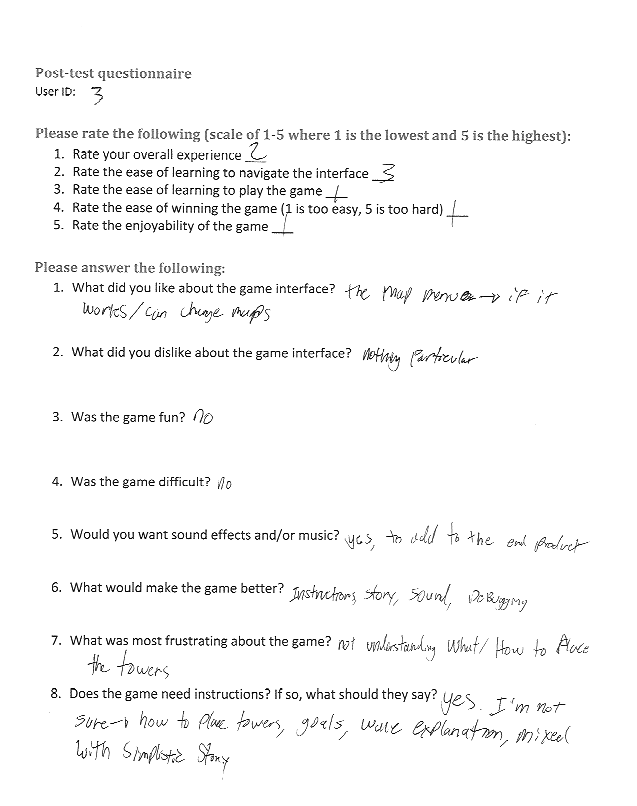 Post-test questionnaire
User ID: 3
Please rate the following (scale of 1-5 where 1 is the lowest and 5 is the highest):
1. Rate your overall experience 2
2. Rate the ease of learning to navigate the interface 3
3. Rate the ease of learning to play the game 1
4. Rate the ease of winning the game (1 is too easy, 5 is too hard) 1
5. Rate the enjoyability of the game 1
Please answer the following:
1. What did you like about the game interface? the map menu → if it
works/can change maps
2. What did you dislike about the game interface? nothing Particular
3. Was the game fun? no
4. Was the game difficult? no
5. Would you want sound effects and/or music? yes, to add to the end product
6. What would make the game better? Instructions, story, sound, Debugging
7. What was most frustrating about the game? not understanding what/ How to Place
the towers
8. Does the game need instructions? If so, what should they say? yes. I'm not
sure → how to place towers, goals, wave explanation, mixed
with simplistic story